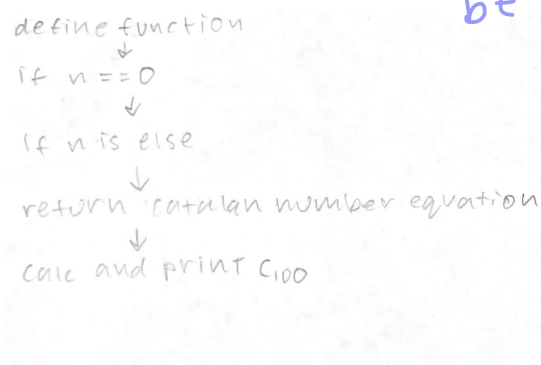 bt
define function
↓
if n == 0
↓
if n is else
↓
return catalan number equation
↓
calc and print C₁₀₀